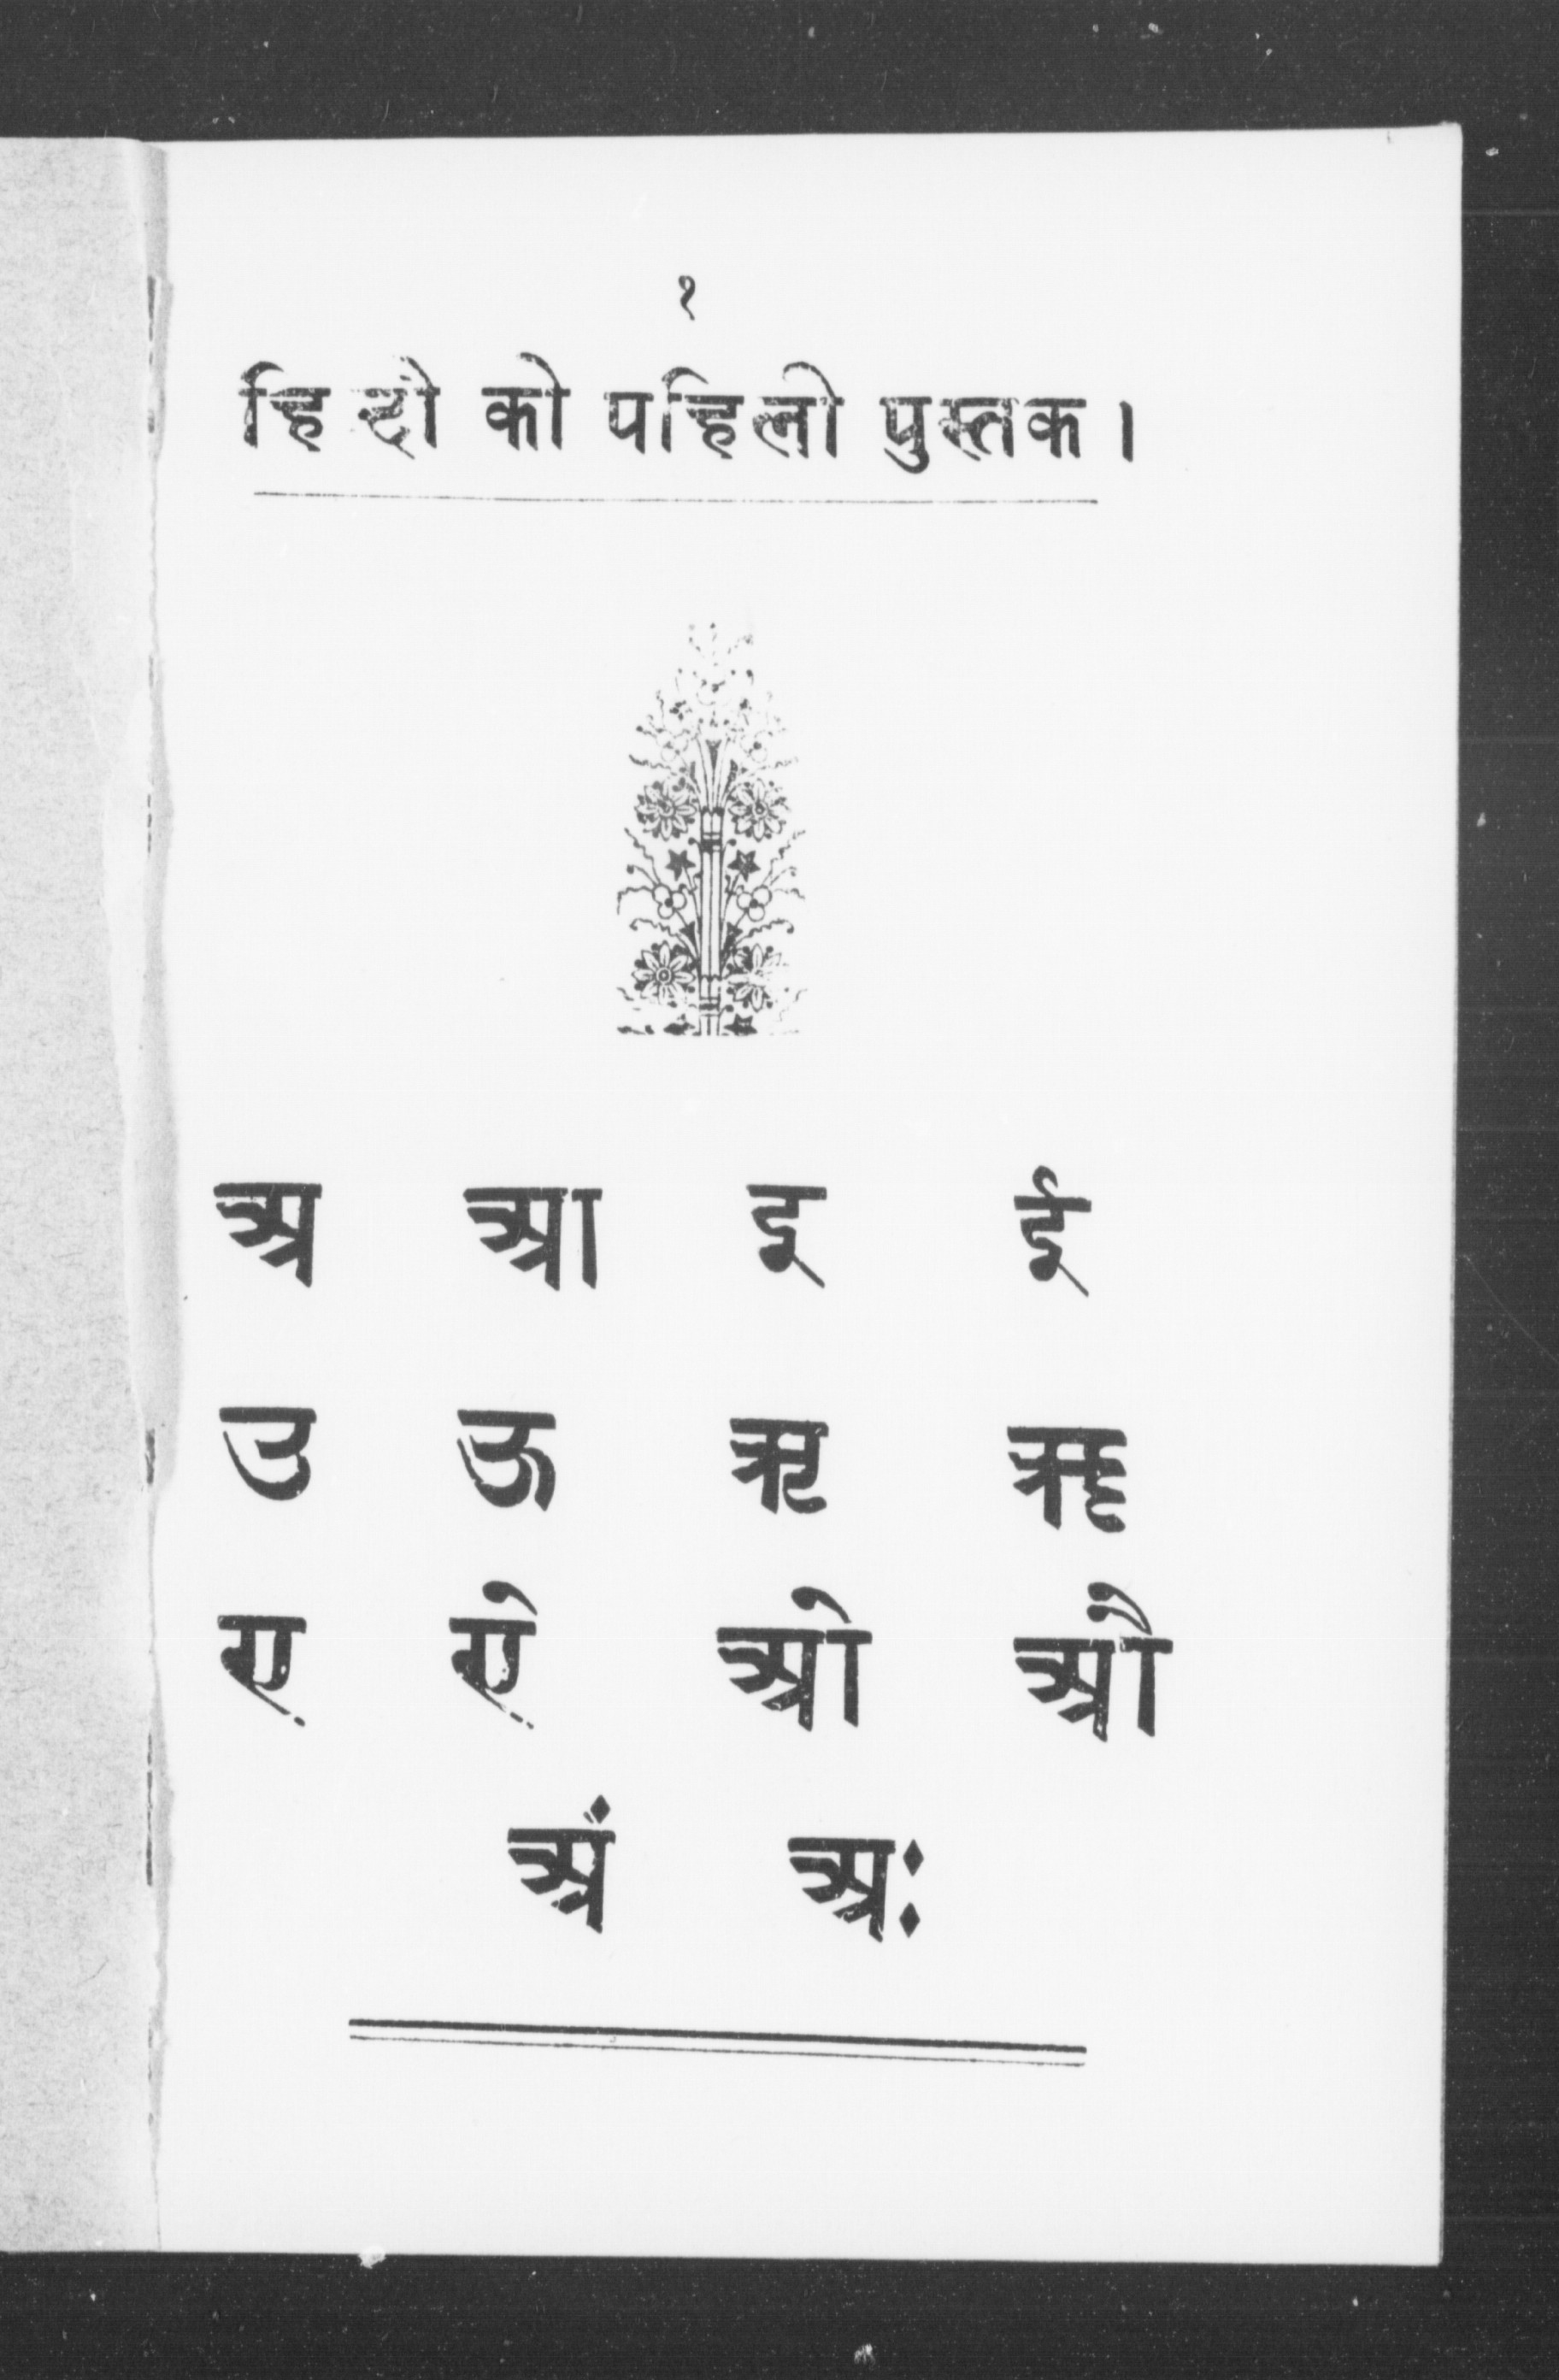 १
हिन्दी की पहिली पुस्तक ।
अ आ इ ई
उ ऊ ऋ ॠ
ए ऐ ओ औ
अं अः